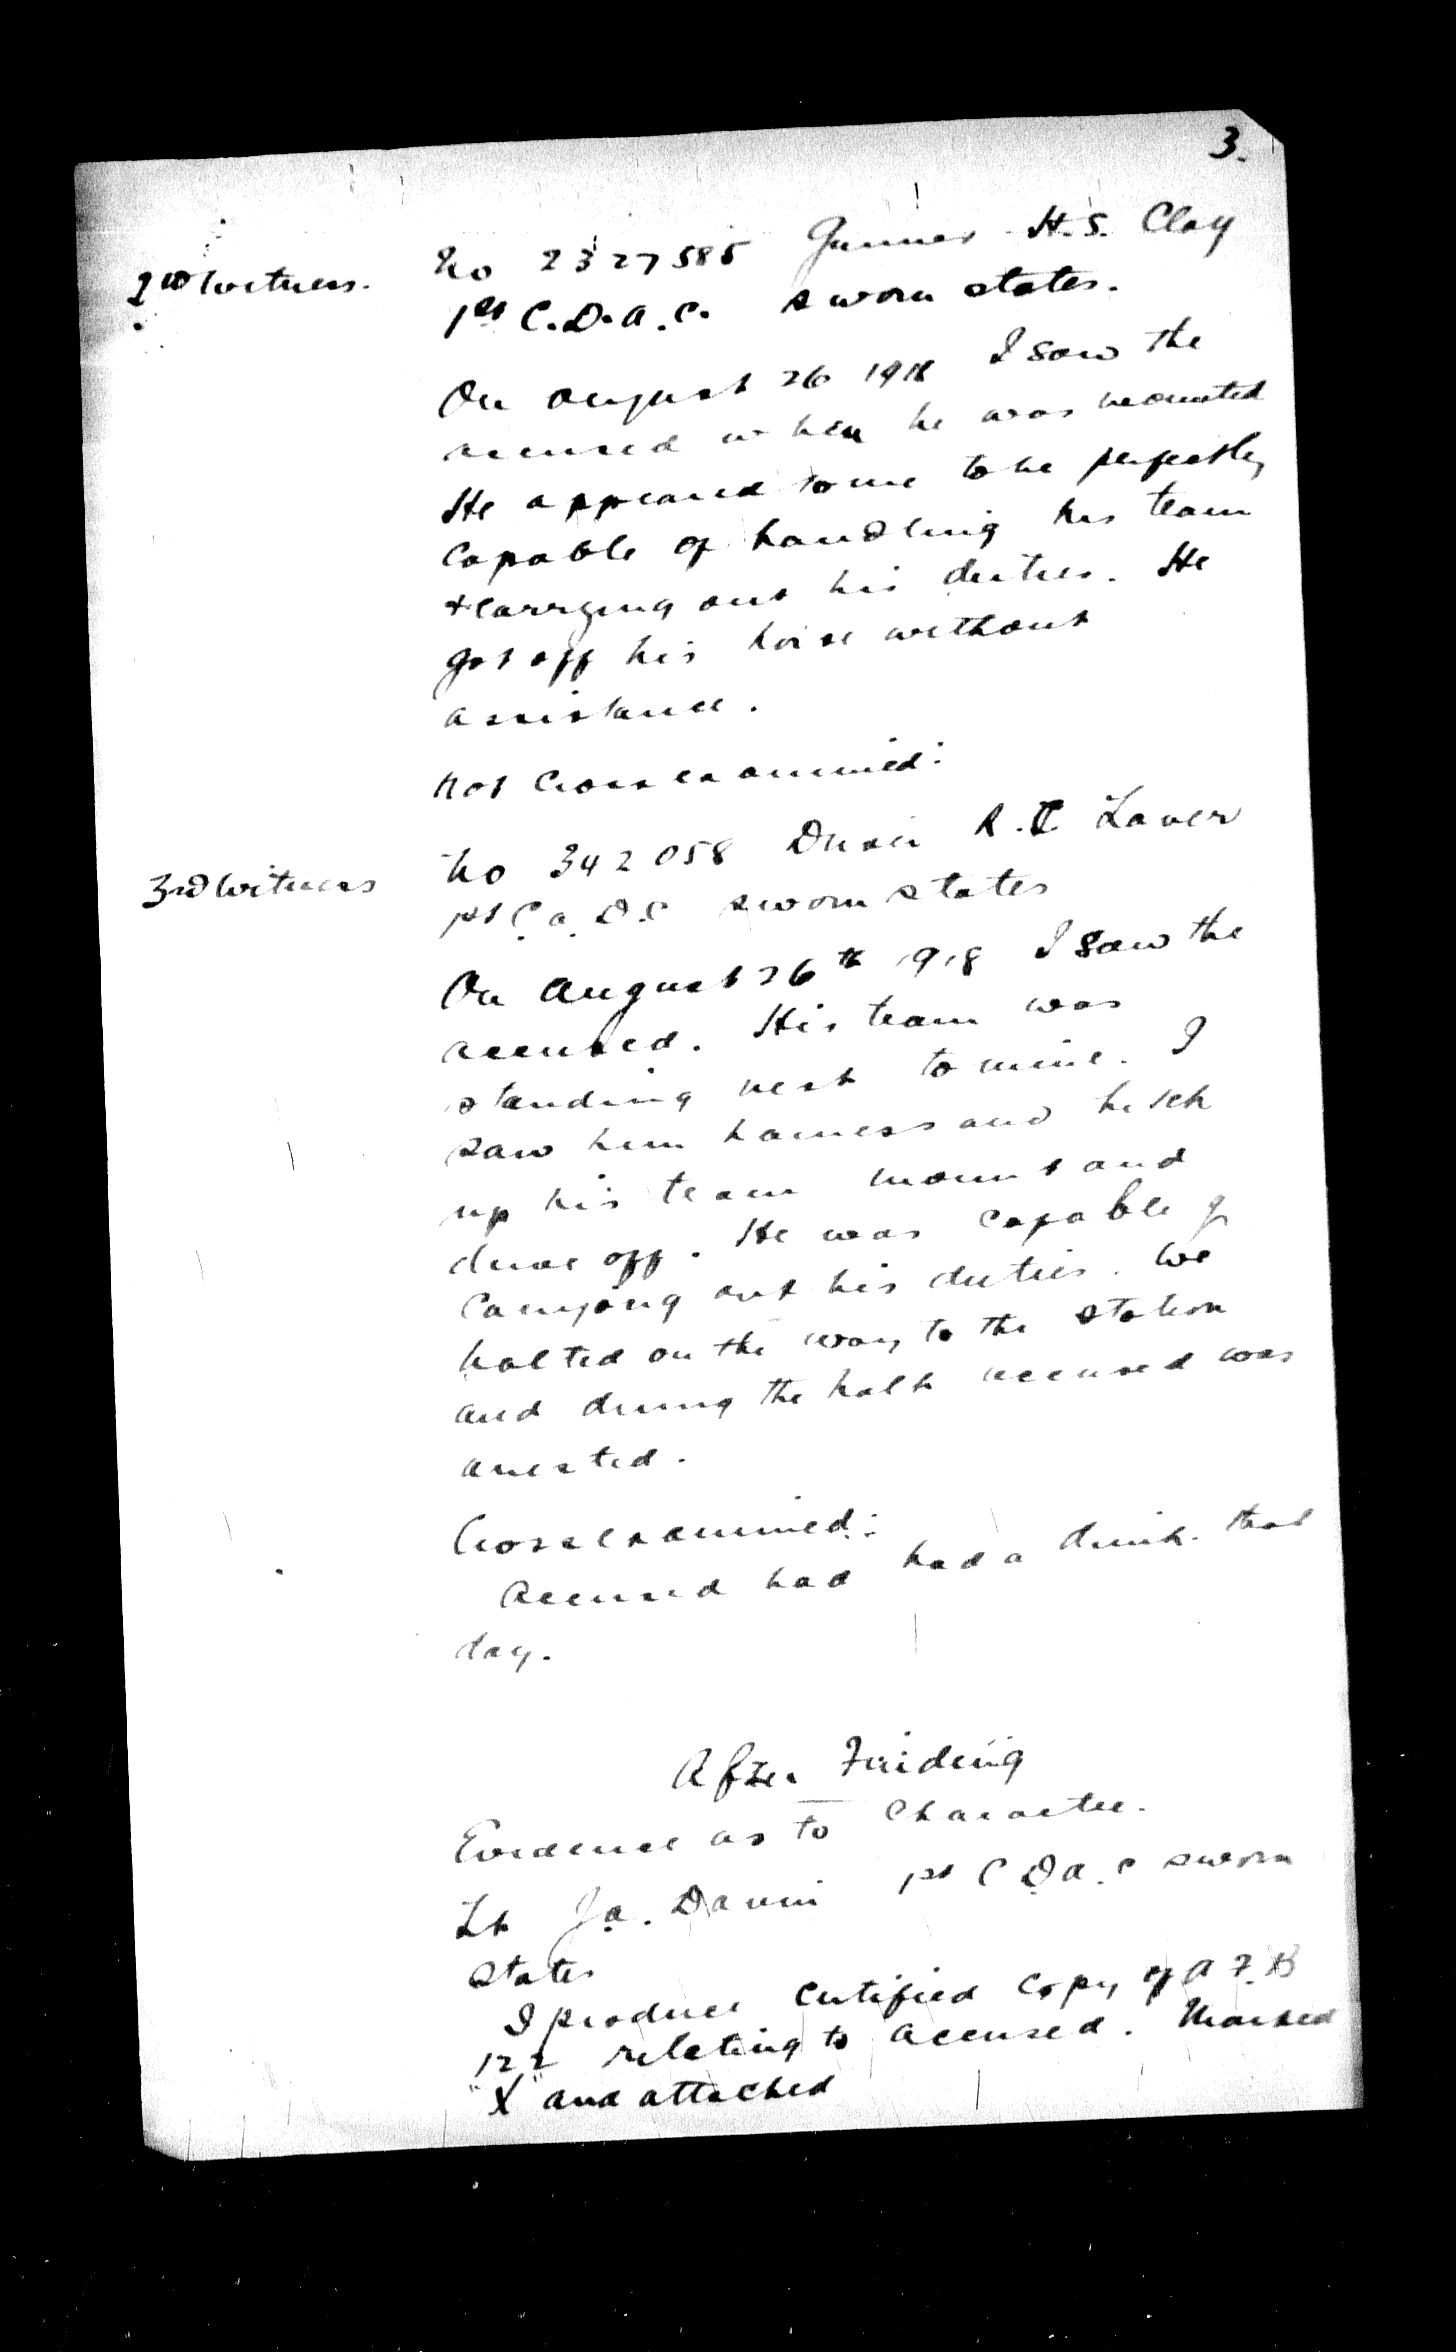 3.
2nd Witness. No 2327585 Gunner H.S. Clay
1st C.D.A.C. sworn states.
On August 26 1918 I saw the
accused when he was mounted
He appeared to me to be perfectly
capable of handling his team
+ carrying out his duties. He
got off his horse without
assistance.
Not cross examined:
3rd Witness No 342058 Driver R.C Laver
1st C.A.D.C sworn states
On August 26th 1918 I saw the
accused. His team was
standing next to mine. I
saw him harness and hitch
up his team mount and
drive off. He was capable of
carrying out his duties. We
halted on the way to the station
and during the halt accused was
arrested.
Cross examined:
Accused had had a drink that
day.
After Finding
Evidence as to Character.
Lt J.A. 1st C D A.C sworn
states
I produce certified copy of A.F.B
122 relating to accused. Marked
"X" and attached